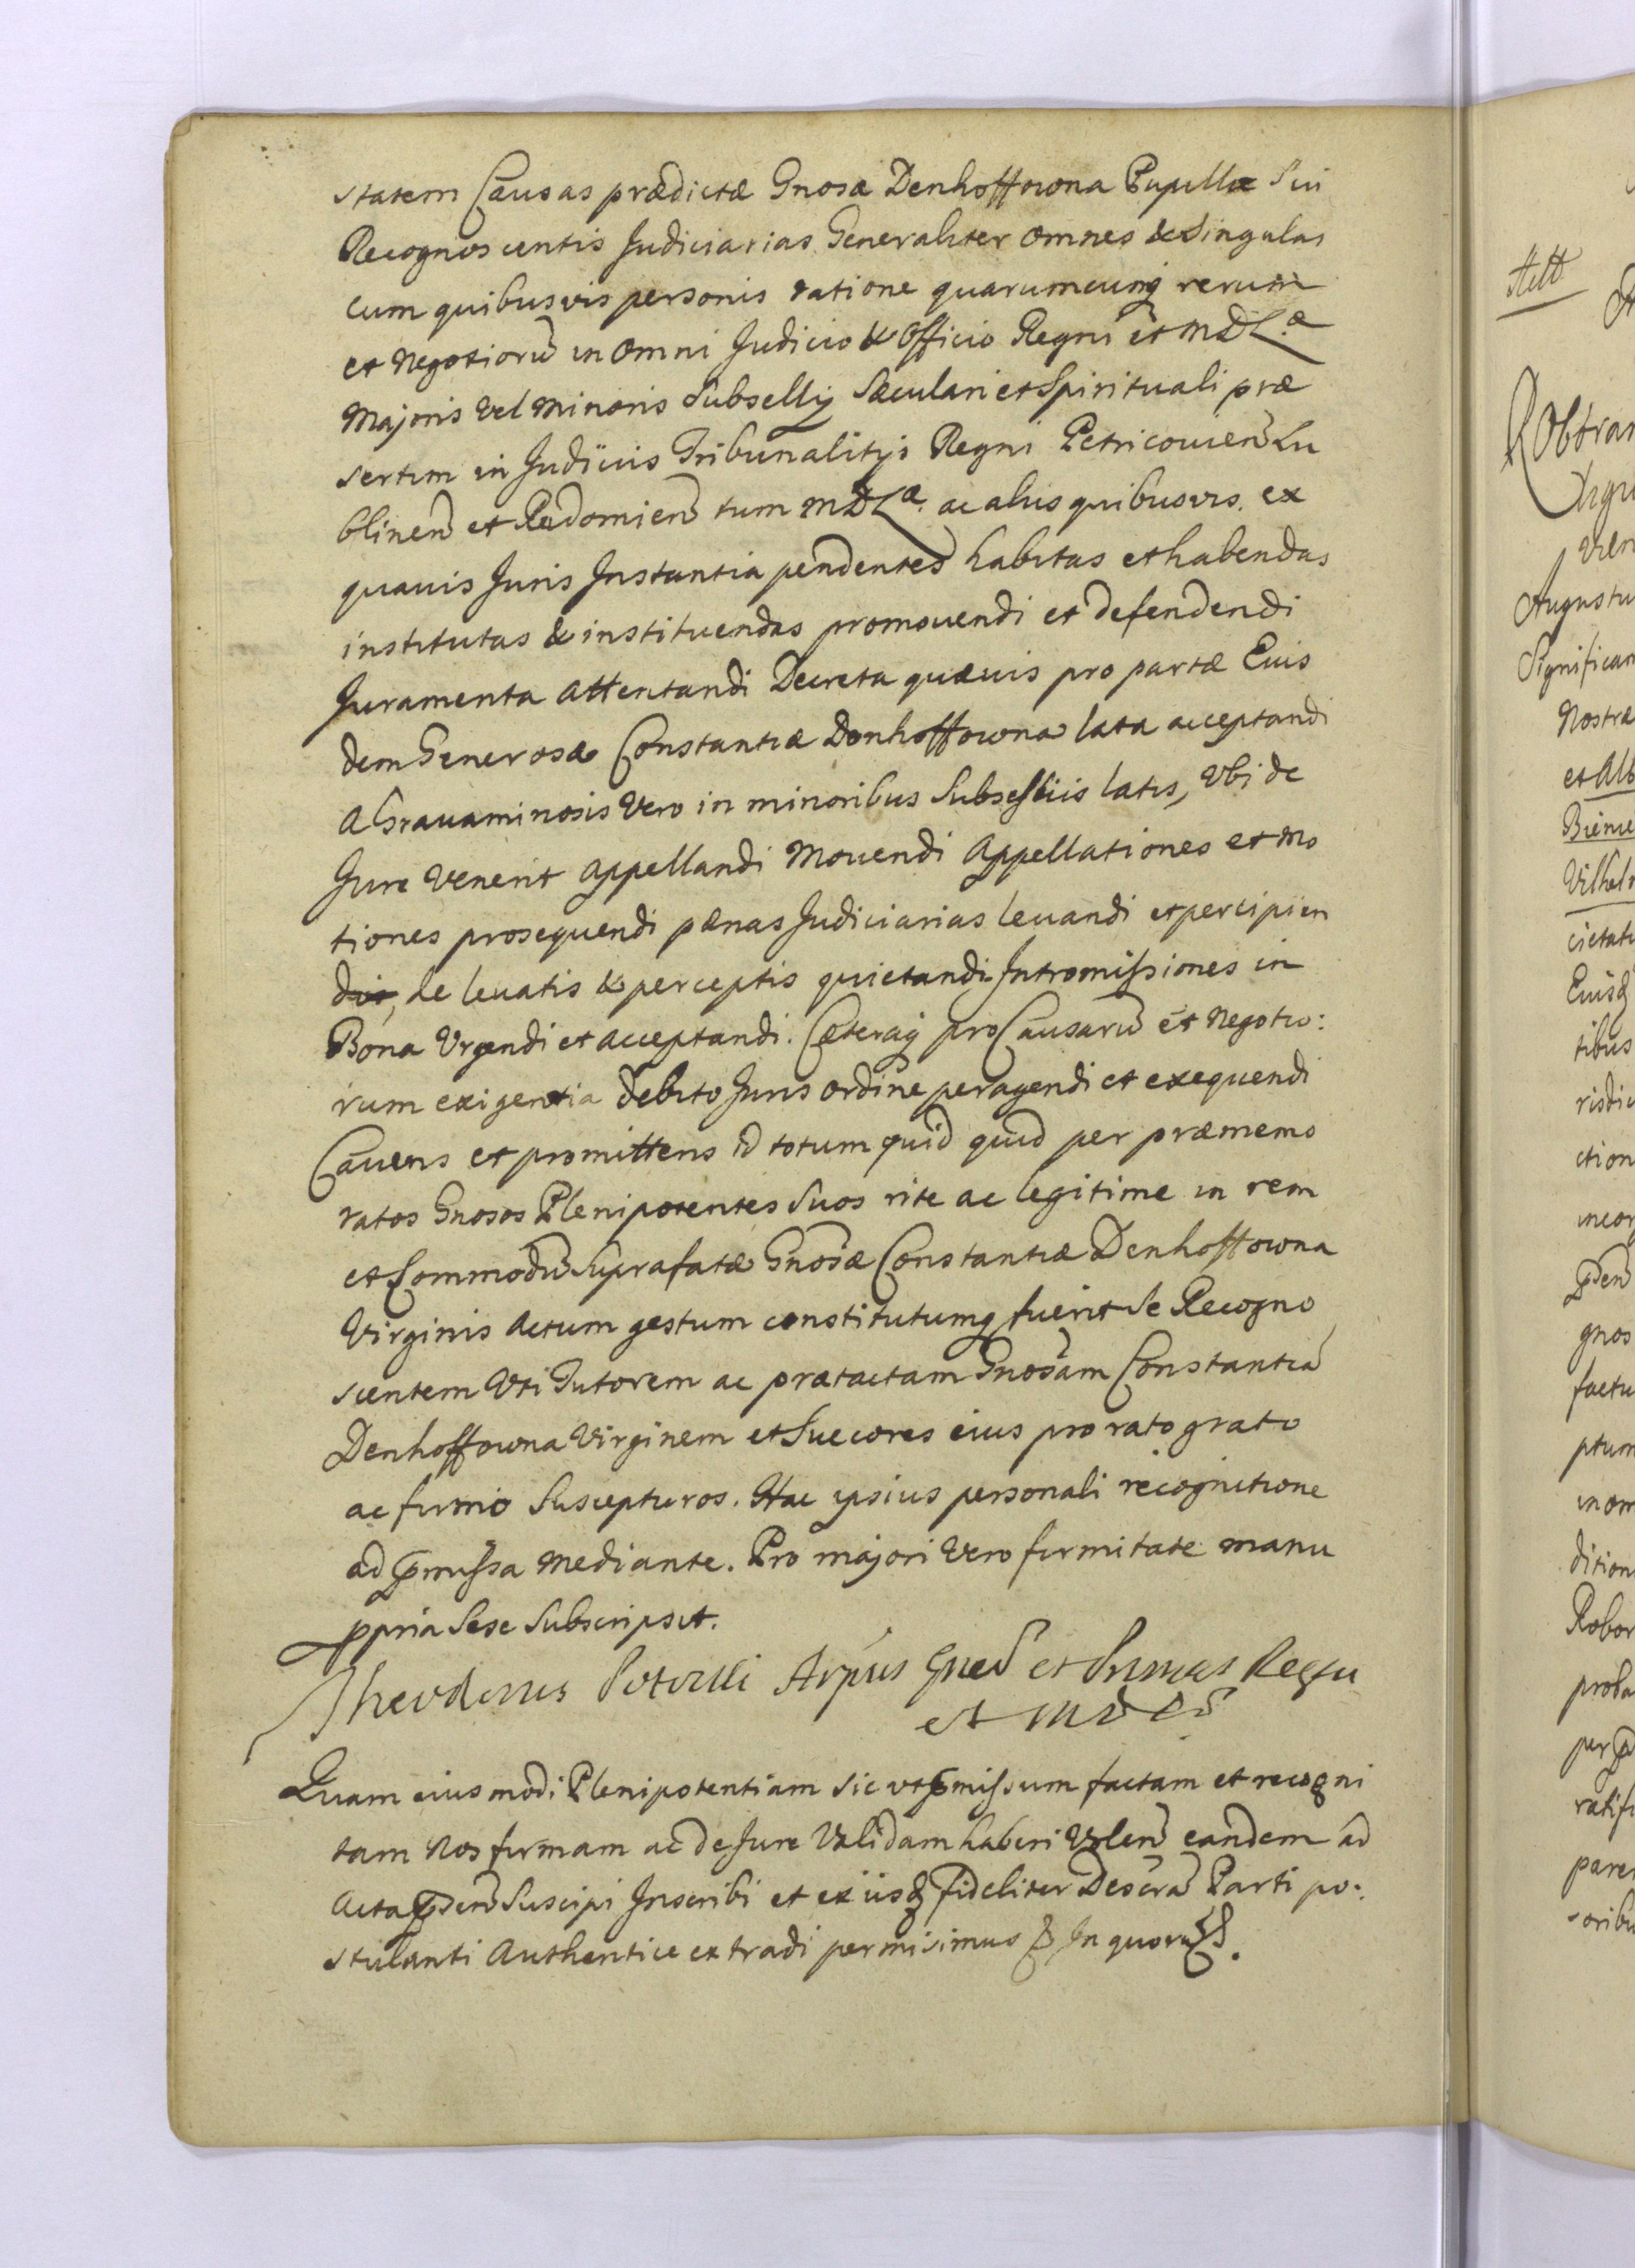 statem Causas prædictæ Gnosæ Denhoffowna Pupillæ Sui
Recognoscentis Judiciarias Generaliter omnes & Singulas
cum quibusvis personis ratione quarumcunq rerum
et Negotiorū in omni Judicio & Officio Regni et MDLæ
Majoris vel Minoris Subsellij Sæculari et Spirituali præ
sertim in Judiciis Tribunalitijs Regni Petricouien Lu
blinen et Radomien tum MDLæ ac aliis quibusvis. ex
quauis Juris Instantia pendentes habitas et habendas
institutas & instituendas promouendi et defendendi
Juramenta attentandi Decreta quæuis pro partæ Eius
dem Generosæ Constantiæ Denhoffowna lata acceptandi
A Grauaminosis vero in minoribus Subselliis latis, Vbi de
Jure Venerit appellandi Mouendi Appellationes et Mo
tiones prosequendi pænas Judiciarias leuandi et percipien
di, de leuatis & perceptis quietandi Intromissiones in
Bona Vrgendi et acceptandi. Cæteraq pro Causarū et Negotio:
rum exigentia debito Juris ordine peragendi et exequendi
Cauens et promittens id totum quid quid per præmemo
ratos Gnosos Plenipotentes Suos rite ac legitime in rem
et Commodū Suprafatæ Gnosæ Constantiæ Denhoffowna
Virginis Actum gestum constitutumq fuerit Se Recogno
scentem Vti Tutorem ac prætactam Gnosam Constantiā
Denhoffowna Virginem et Succores eius pro rato grato
ac firmo Suscepturos. Hac ipsius personali recognitione
ad pmissa mediante. Pro majori Vero firmitate manu
ppria Sese Subscripsit.
Theodorus Potocki Arpus Gnes et Primas Regni
et M D L
Quam eiusmodi Plenipotentiam Sic vt pmissum factam et recogni
tam Nos firmam ac de Jure Validam haberi Volen eandem ad
Acta psen Suscipi Inscribi et ex iisd fideliter Descra Parti po:
stulanti Authentice extradi permisimus In quorū